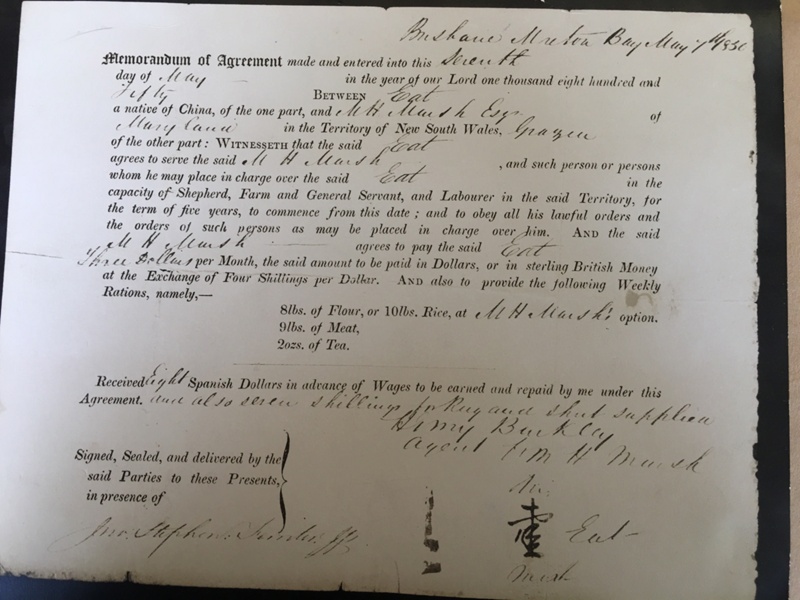 Brisbane Moreton Bay May 7th 1850
Memorandum of Agreement made and entered into this Seventh
day of May in the year of our Lord one thousand eight hundred and
Fifty BETWEEN Eat
a native of China, of the one part, and M H Marsh Esqr of
Maryland in the Territory of New South Wales, Grazier
of the other part: WITNESSETH that the said Eat
agrees to serve the said M H Marsh , and such person or persons
whom he may place in charge over the said Eat in the
capacity of Shepherd, Farm and General Servant, and Labourer in the said Territory, for
the term of five years, to commence from this date; and to obey all his lawful orders and
the orders of such persons as may be placed in charge over him. AND the said
M H Marsh agrees to pay the said Eat
Three Dollars per Month, the said amount to be paid in Dollars, or in sterling British Money
at the Exchange of Four Shillings per Dollar. AND also to provide the following Weekly
Rations, namely,—
8lbs. of Flour, or 10lbs. Rice, at M H Marsh's option.
9lbs. of Meat,
2ozs. of Tea.
Received Eight Spanish Dollars in advance of Wages to be earned and repaid by me under this
Agreement. and also seven shillings for Rug and shirt supplied
Henry Buckley
agent for M H Marsh
Signed, Sealed, and delivered by the
said Parties to these Presents,
in presence of
his
Eat
mark